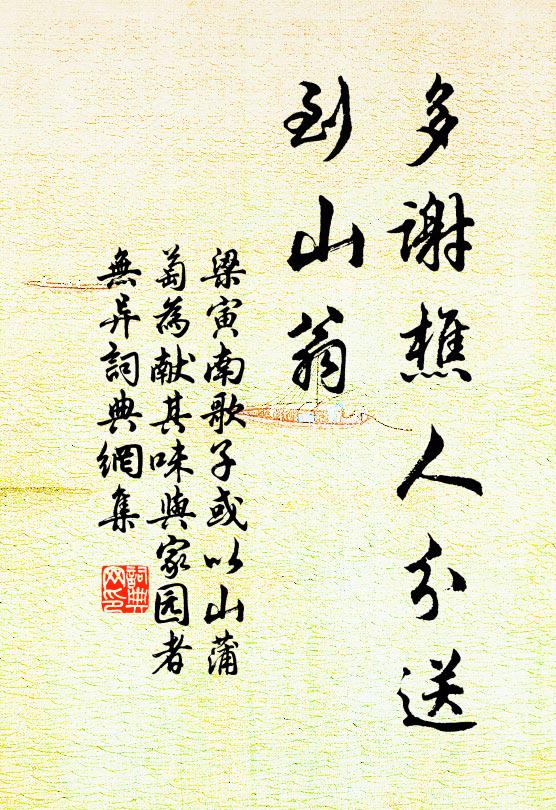 多谢樵人分送
到山翁
梁寅南歌子或以山蒲
萄為献其味與家园者
無异詞典網集
詞典
网印